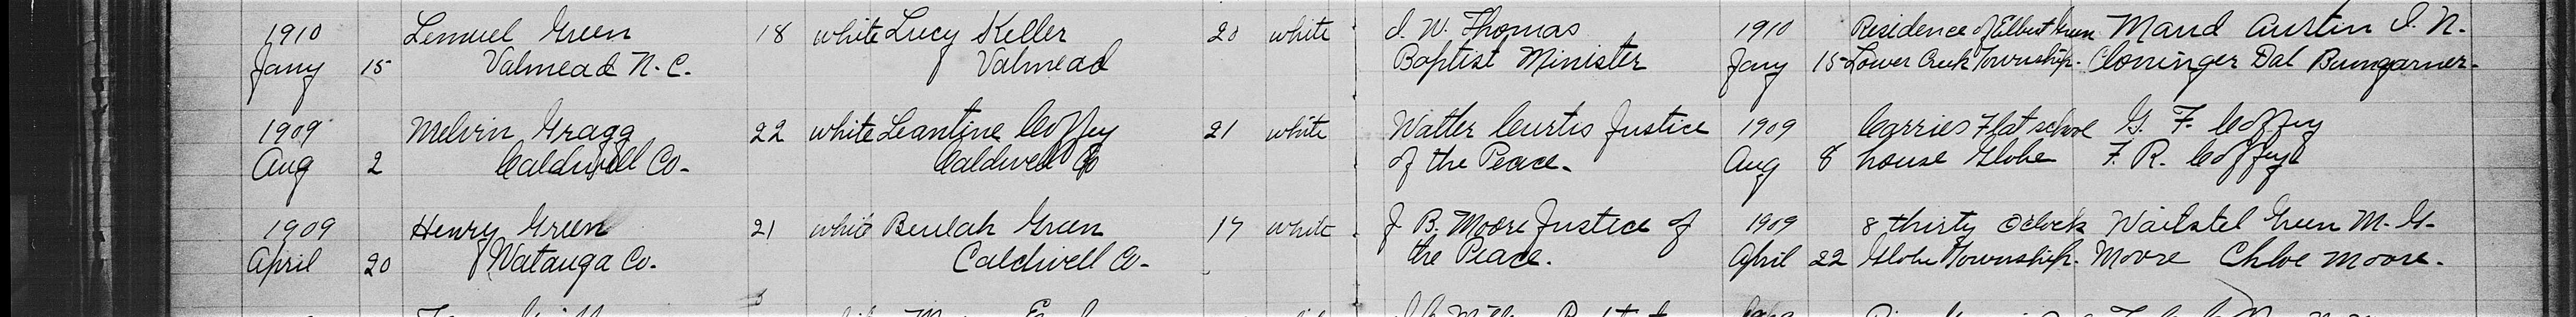 1910 Lemuel Green 18 white Lucy Keller 20 white I. W. Thomas 1910 Residence of Elbert Green Maud Austin I. N.
Jany 15 Valmead N. C. Valmead Baptist Minister Jany 15 Lower Creek Township. Cloninger Dal Bumgarner-
1909 Melvin Gragg 22 white Leantine Coffey 21 white Walter Curtis Justice 1909 Carries Flat school G. F. Coffey
Aug 2 Caldwell Co- Caldwell Co of the Peace- Aug 8 house Globe F. R. Coffey
1909 Henry Green 21 white Beulah Green 17 white J B. Moore Justice of 1909 8 thirty O'clock Green M. G-
April 20 Watauga Co- Caldwell Co- the Peace. April 22 Globe Township. Moore Chloe Moore.